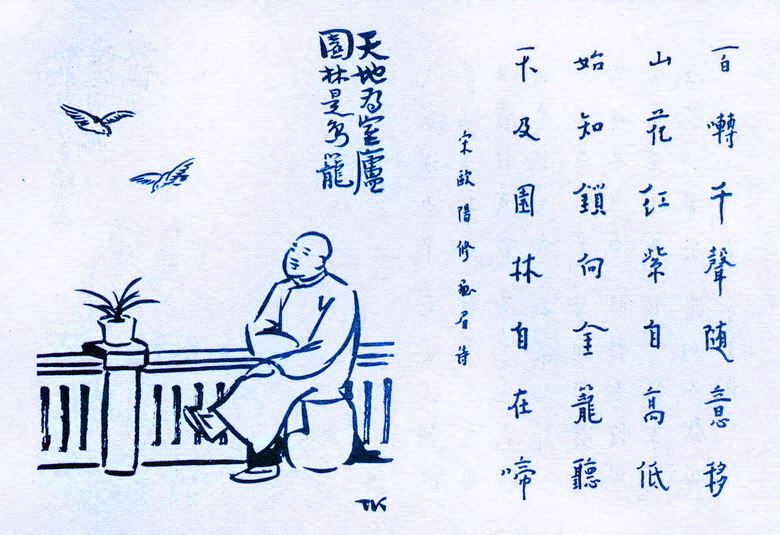 百囀千聲随意移
山花红紫自高低
始知鎖向金籠聽
不及園林自在啼
宋歐陽修画眉诗
天地为室廬
園林是鸟籠
TK